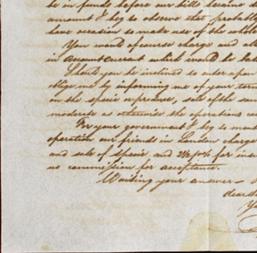 be in funds before our bills become d
amount I beg to observe that probably
have occasion to make use of the whole
You would of course charge and all
in Account Current which would be bal
Should you be inclined to enter upon
oblige me by informing me of your term
on the specie expected, sale of the same
moderate as otherwise the operations can
For your government I beg to ment
operation our friends in London charge
and sale of specie and 2½ p% for ins
no commission for acceptance.
Waiting your answer
dear
Yo